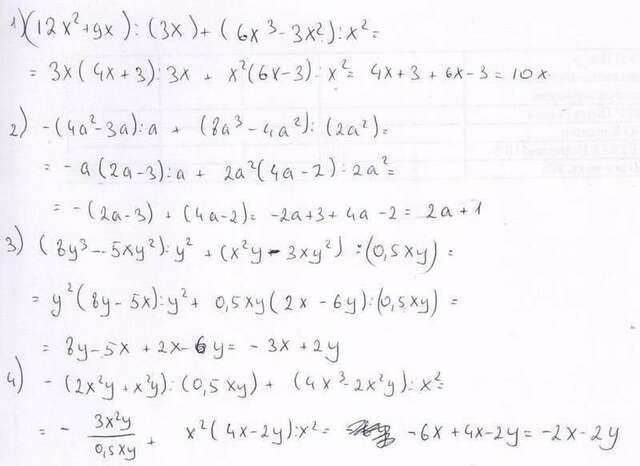 1) (12x²+9x):(3x)+(6x³-3x²):x²=
= 3x(4x+3):3x + x²(6x-3):x²= 4x+3+6x-3=10x
2) -(4a²-3a):a + (8a³-4a²):(2a²)=
= -a(2a-3):a + 2a²(4a-2):2a²=
= -(2a-3)+(4a-2)= -2a+3+4a-2= 2a+1
3) (8y³-5xy²):y²+(x²y-3xy²):(0,5xy)=
= y²(8y-5x):y²+ 0,5xy(2x-6y):(0,5xy)=
= 8y-5x+2x-6y= -3x+2y
4) -(2x²y+x²y):(0,5xy)+(4x³-2x²y):x²=
= - 3x²y/0,5xy + x²(4x-2y):x²= -6x+4x-2y=-2x-2y